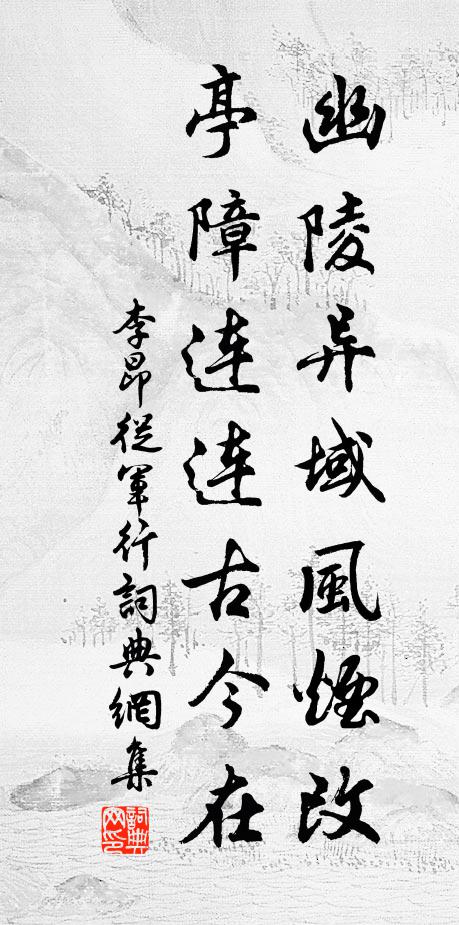 幽陵异域風煙改
亭障連連古今在
李昂從軍行詞典網集
詞典网印